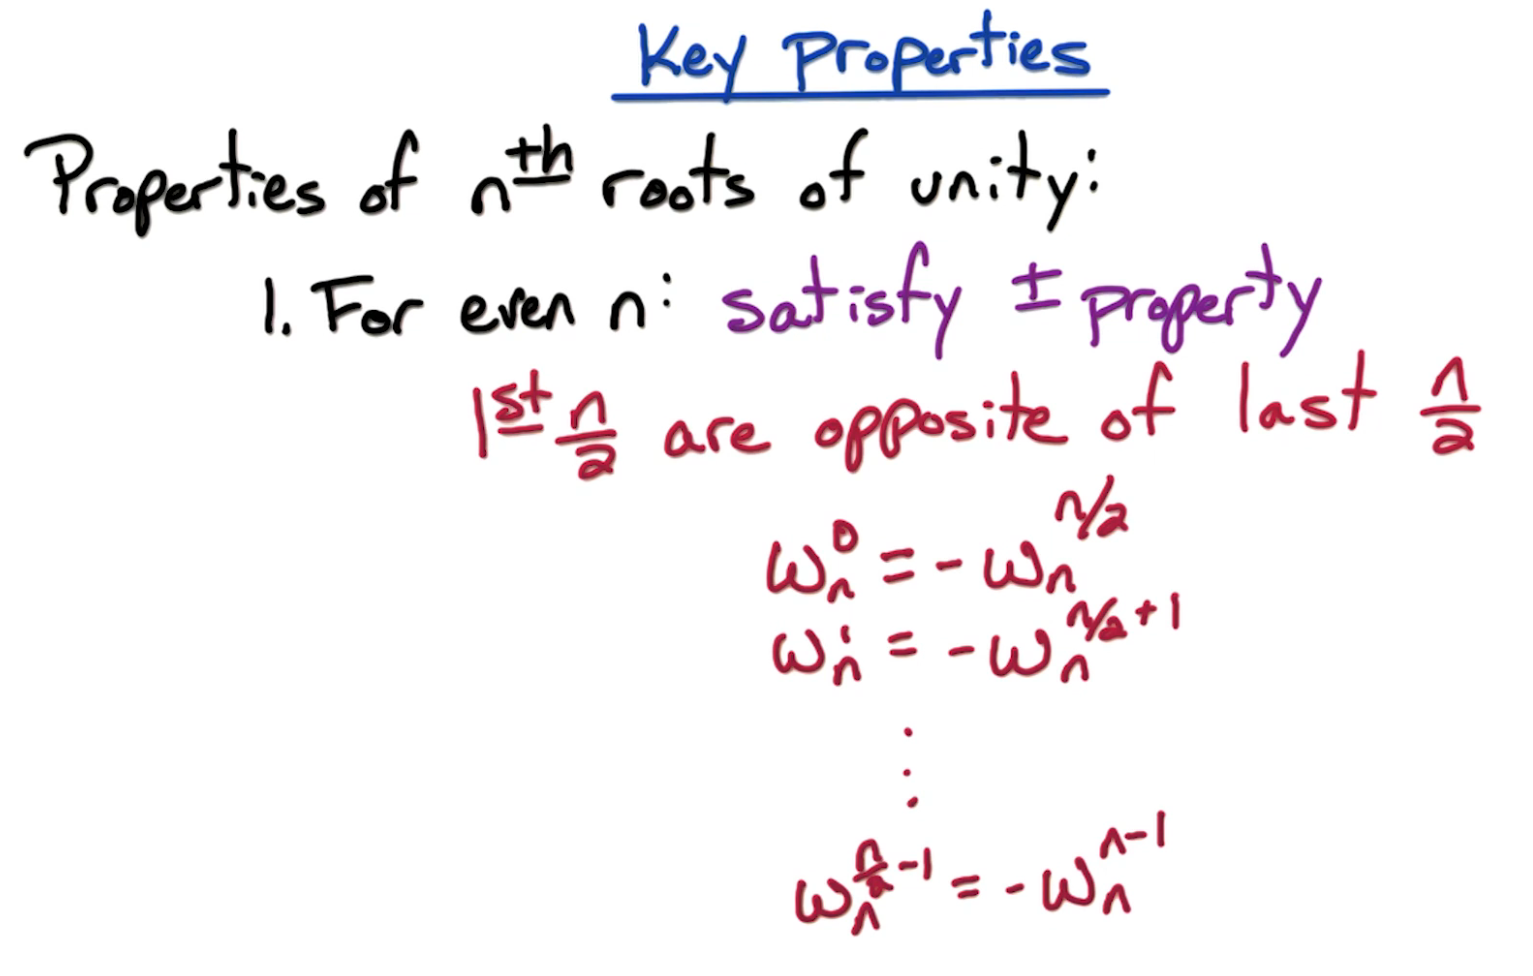 Key Properties
Properties of nth roots of unity:
1. For even n: satisfy ± property
1st n/2 are opposite of last n/2
ωₙ⁰ = - ωₙ^(n/2)
ωₙ¹ = - ωₙ^(n/2 + 1)
⋮
ωₙ^(n/2 - 1) = - ωₙ^(n-1)